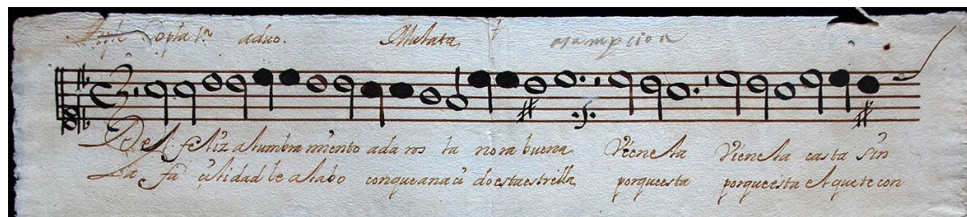 Copla 1ª aduo. Mulata asumpcion
Del feliz alumbramiento adaros la nora buena Vienela Vienela casta sin
La fa cilidad le alabo conqueanaci doestaestrella porqueesta porqueesta quete con